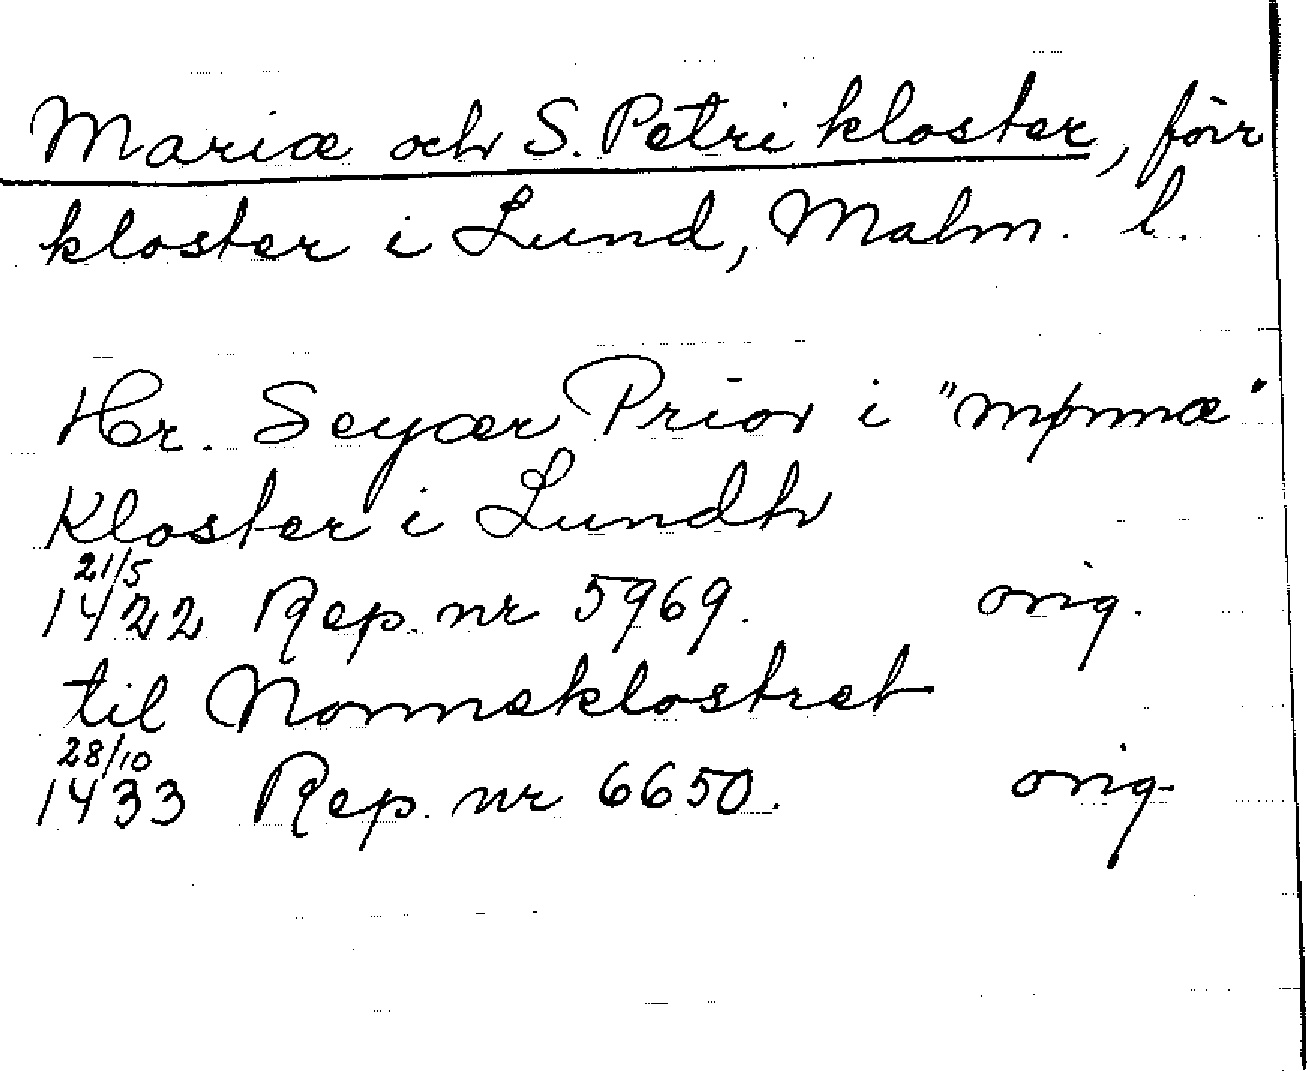 Mariæ och S. Petri kloster, förr
kloster i Lund, Malm. l.
Hr. Seyær Prior i "mønnæ"
Kloster i Lundh
21/5
1422 Rep. nr 5969. orig.
til Nonneklostret
28/10
1433 Rep. nr 6650. orig.